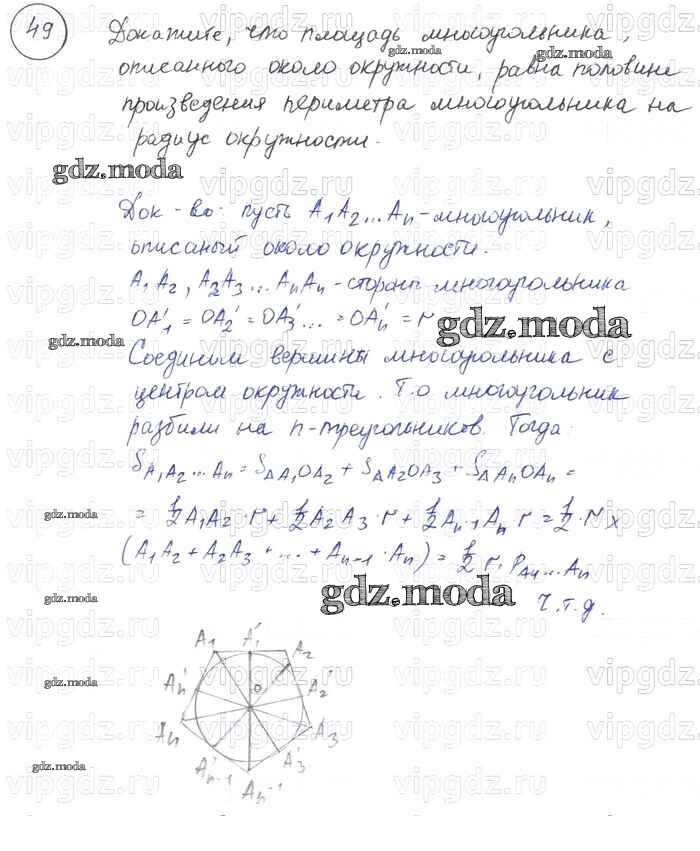 49
Докажите, что площадь многоугольника,
gdz.moda gdz.moda
описанного около окружности, равна половине
произведения периметра многоугольника на
радиус окружности.
gdz.moda
Док-во: пусть A₁A₂...Aₙ-многоугольник,
описаный около окружности.
A₁A₂, A₂A₃...AₙAₙ-стороны многоугольника
OA₁' = OA₂' = OA₃'... = OAₙ' = r
gdz.moda
gdz.moda
Соединим вершины многоугольника с
центром окружности. Т.о многоугольник
разбили на n-треугольников. Тогда:
S A₁A₂...Aₙ = S△A₁OA₂ + S△A₂OA₃ + S△AₙOAₙ =
gdz.moda
= 1/2 A₁A₂·r + 1/2 A₂A₃·r + 1/2 Aₙ₋₁Aₙ r = 1/2·r ×
(A₁A₂ + A₂A₃ + ... + Aₙ₋₁·Aₙ) = 1/2 r·P A₁...Aₙ
gdz.moda
gdz.moda
ч.т.д.
A₁ A₁' A₂
gdz.moda
Aₙ' O A₂'
Aₙ A₃
gdz.moda
Aₙ₋₁' A₃'
Aₙ₋₁
vipgdz.ru